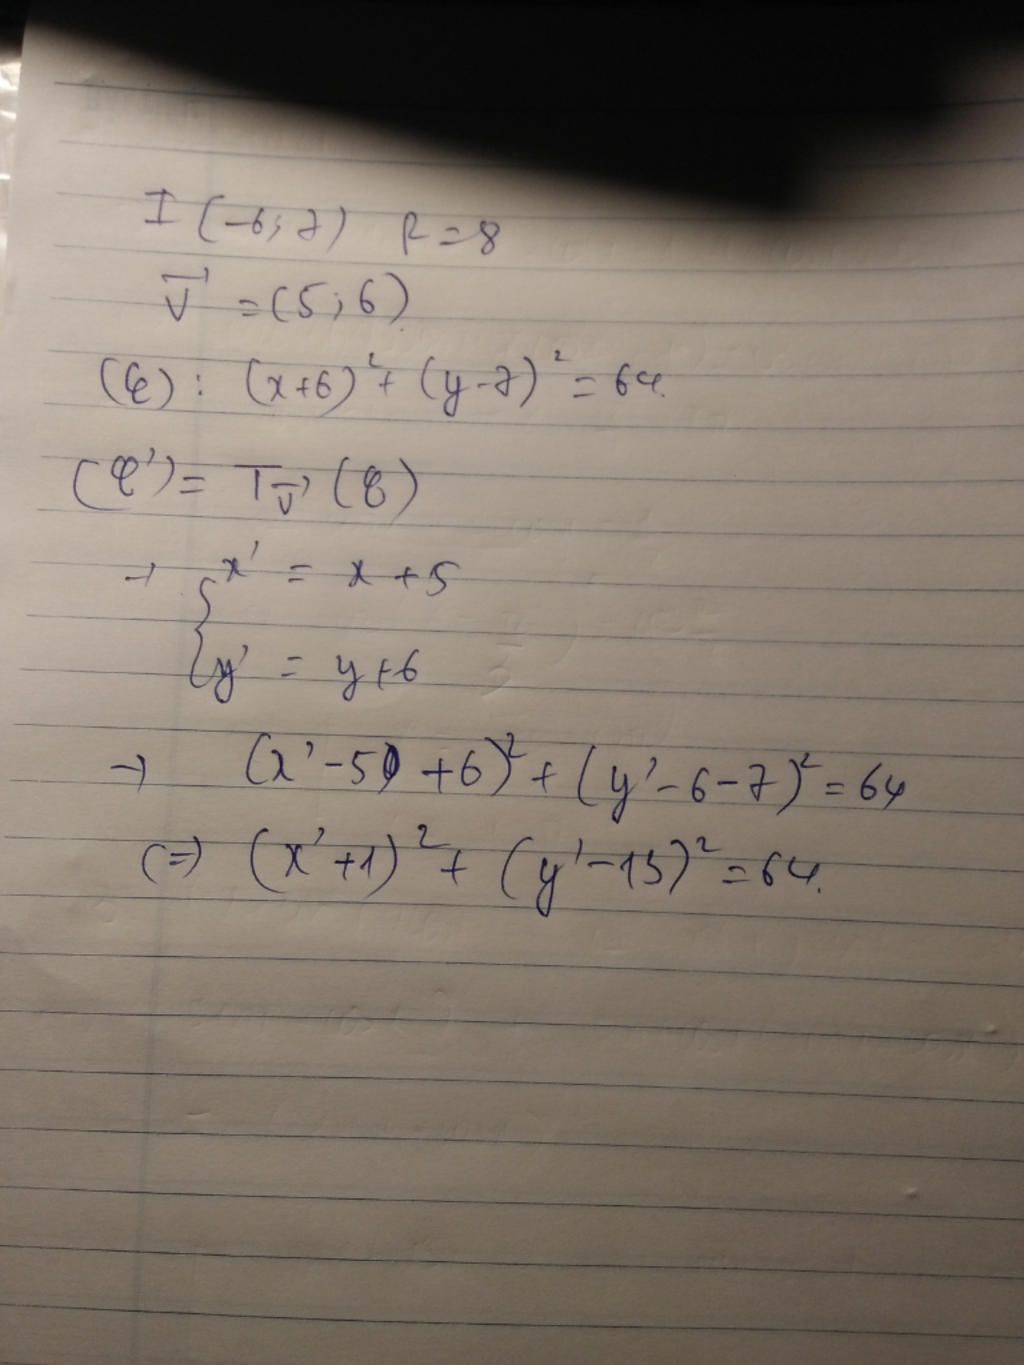 I (-6; 7) R = 8
v⃗ = (5; 6)
(C): (x+6)² + (y-7)² = 64.
(C') = Tv⃗ (C)
→ { x' = x + 5
y' = y + 6
→ (x' - 5 + 6)² + (y' - 6 - 7)² = 64
(=) (x' + 1)² + (y' - 13)² = 64.